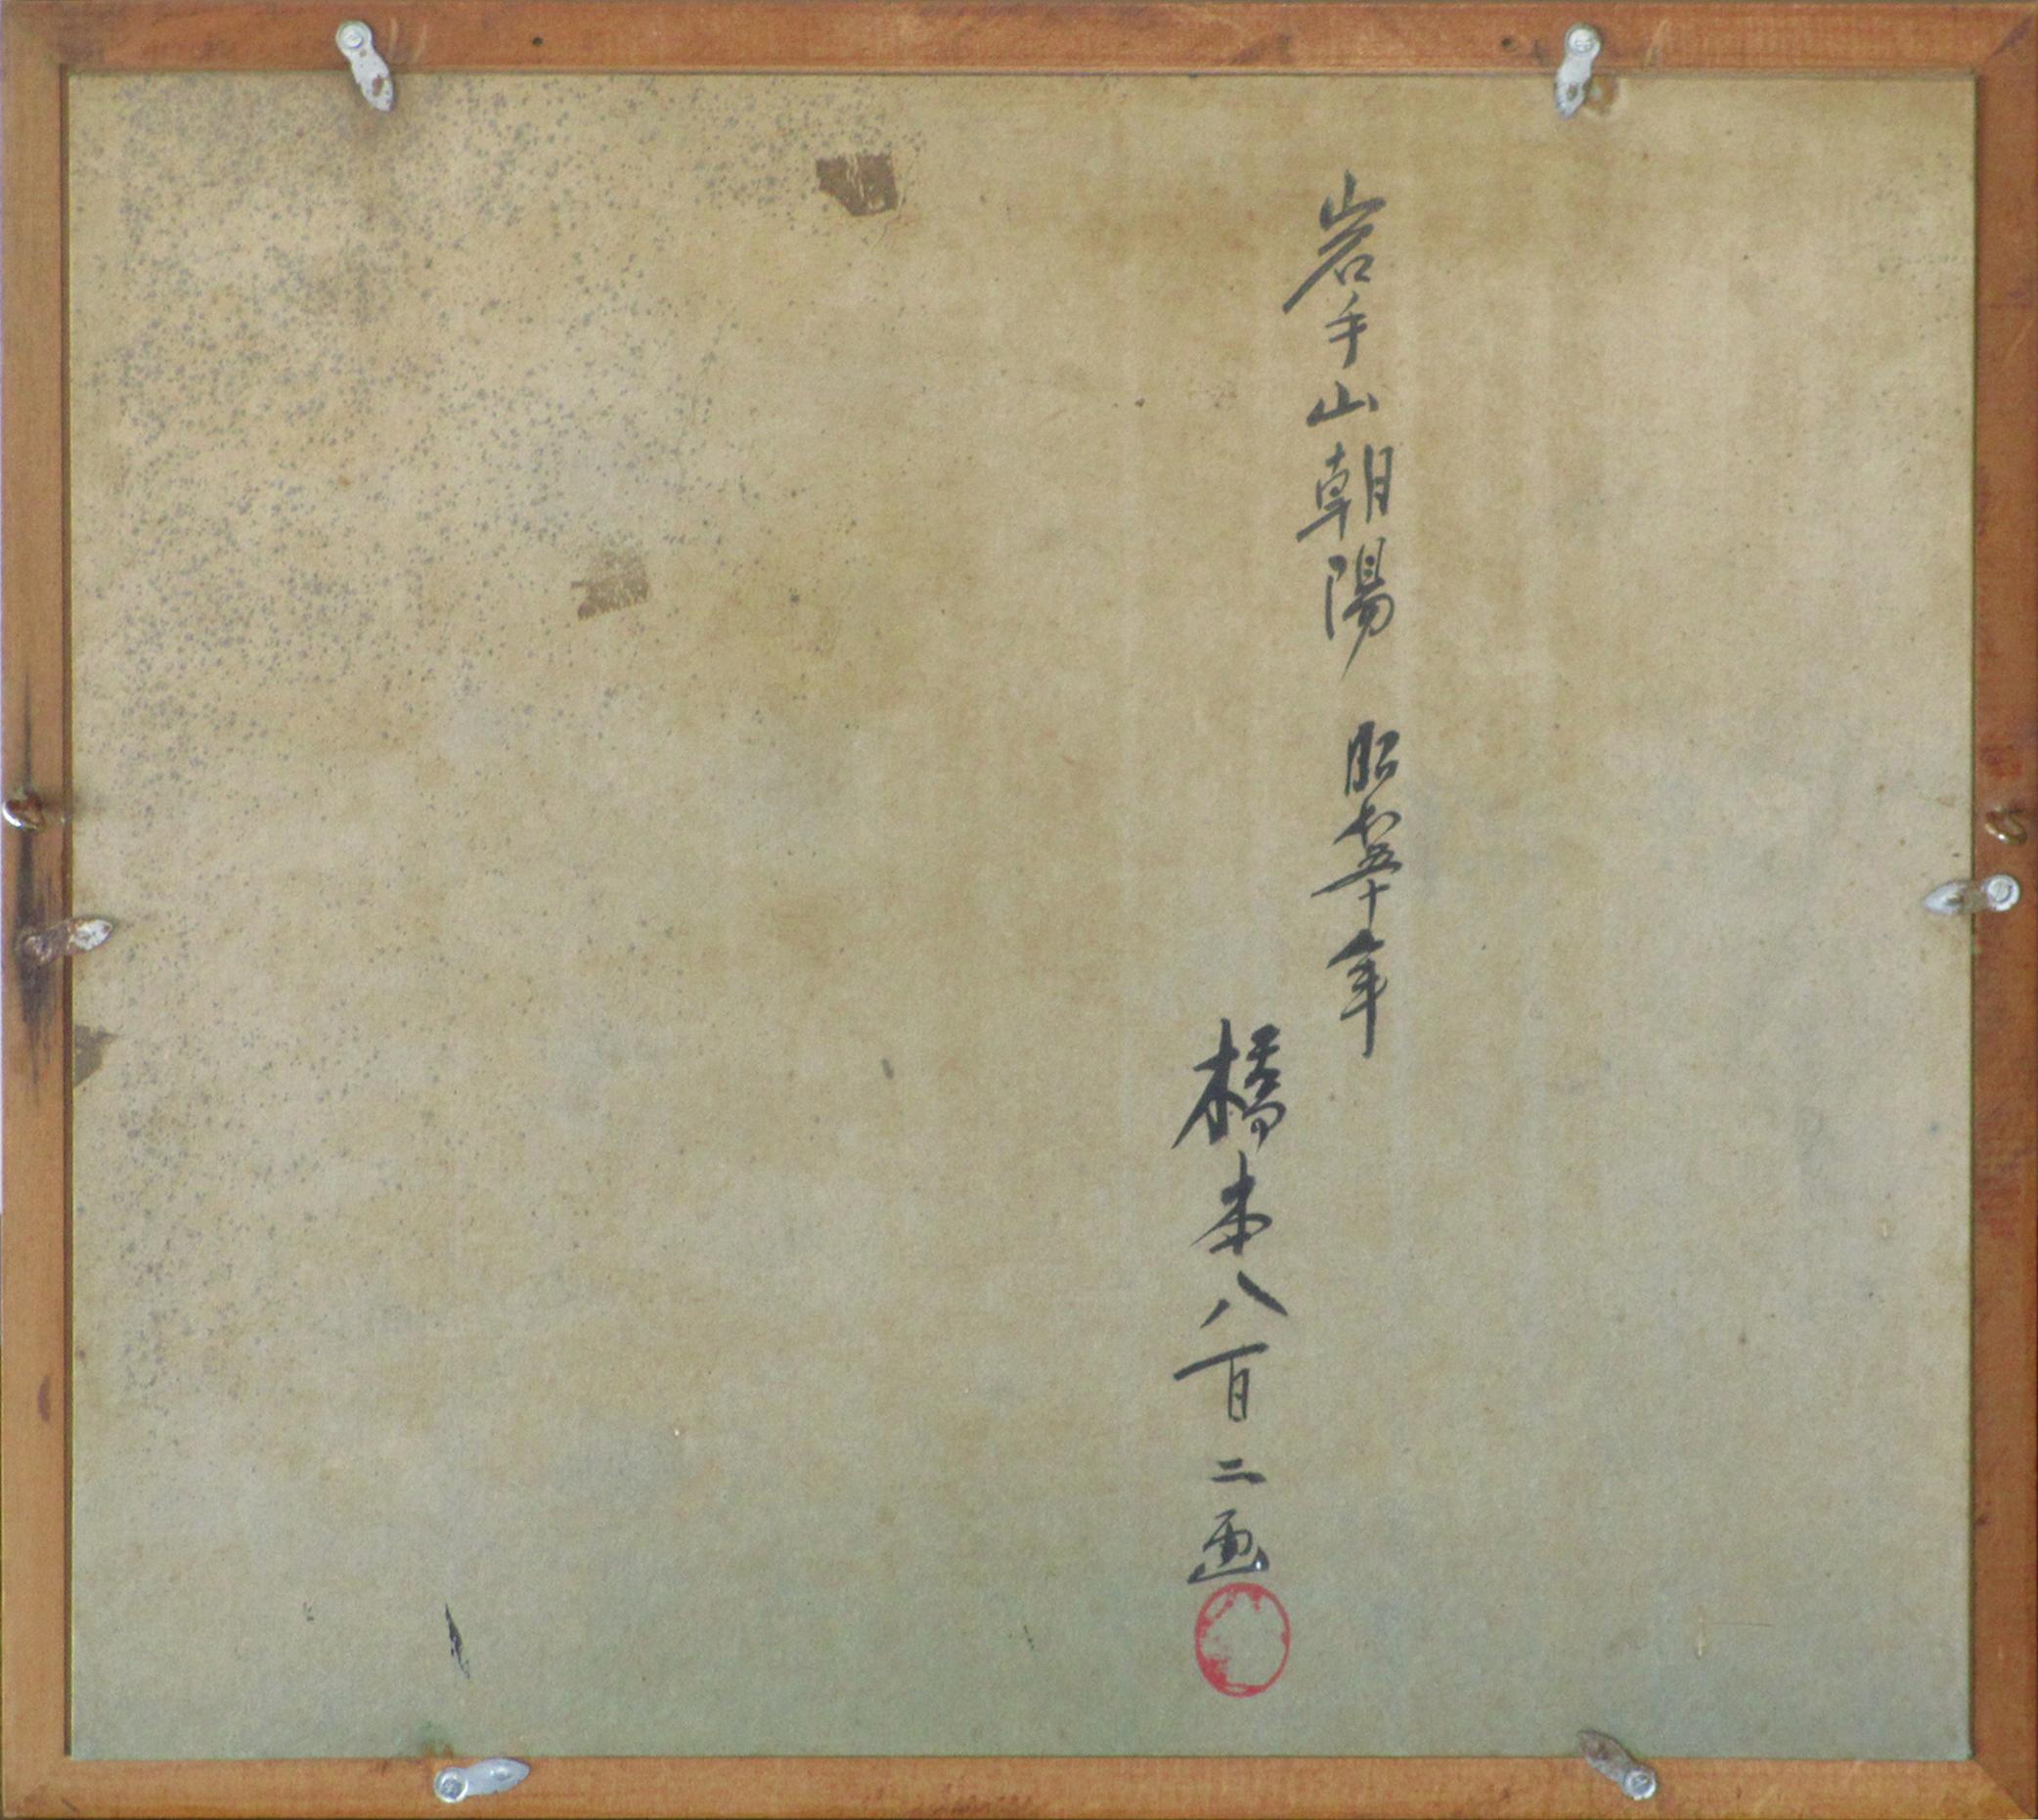 岩手山朝陽 昭和五十年
橋本八百二画